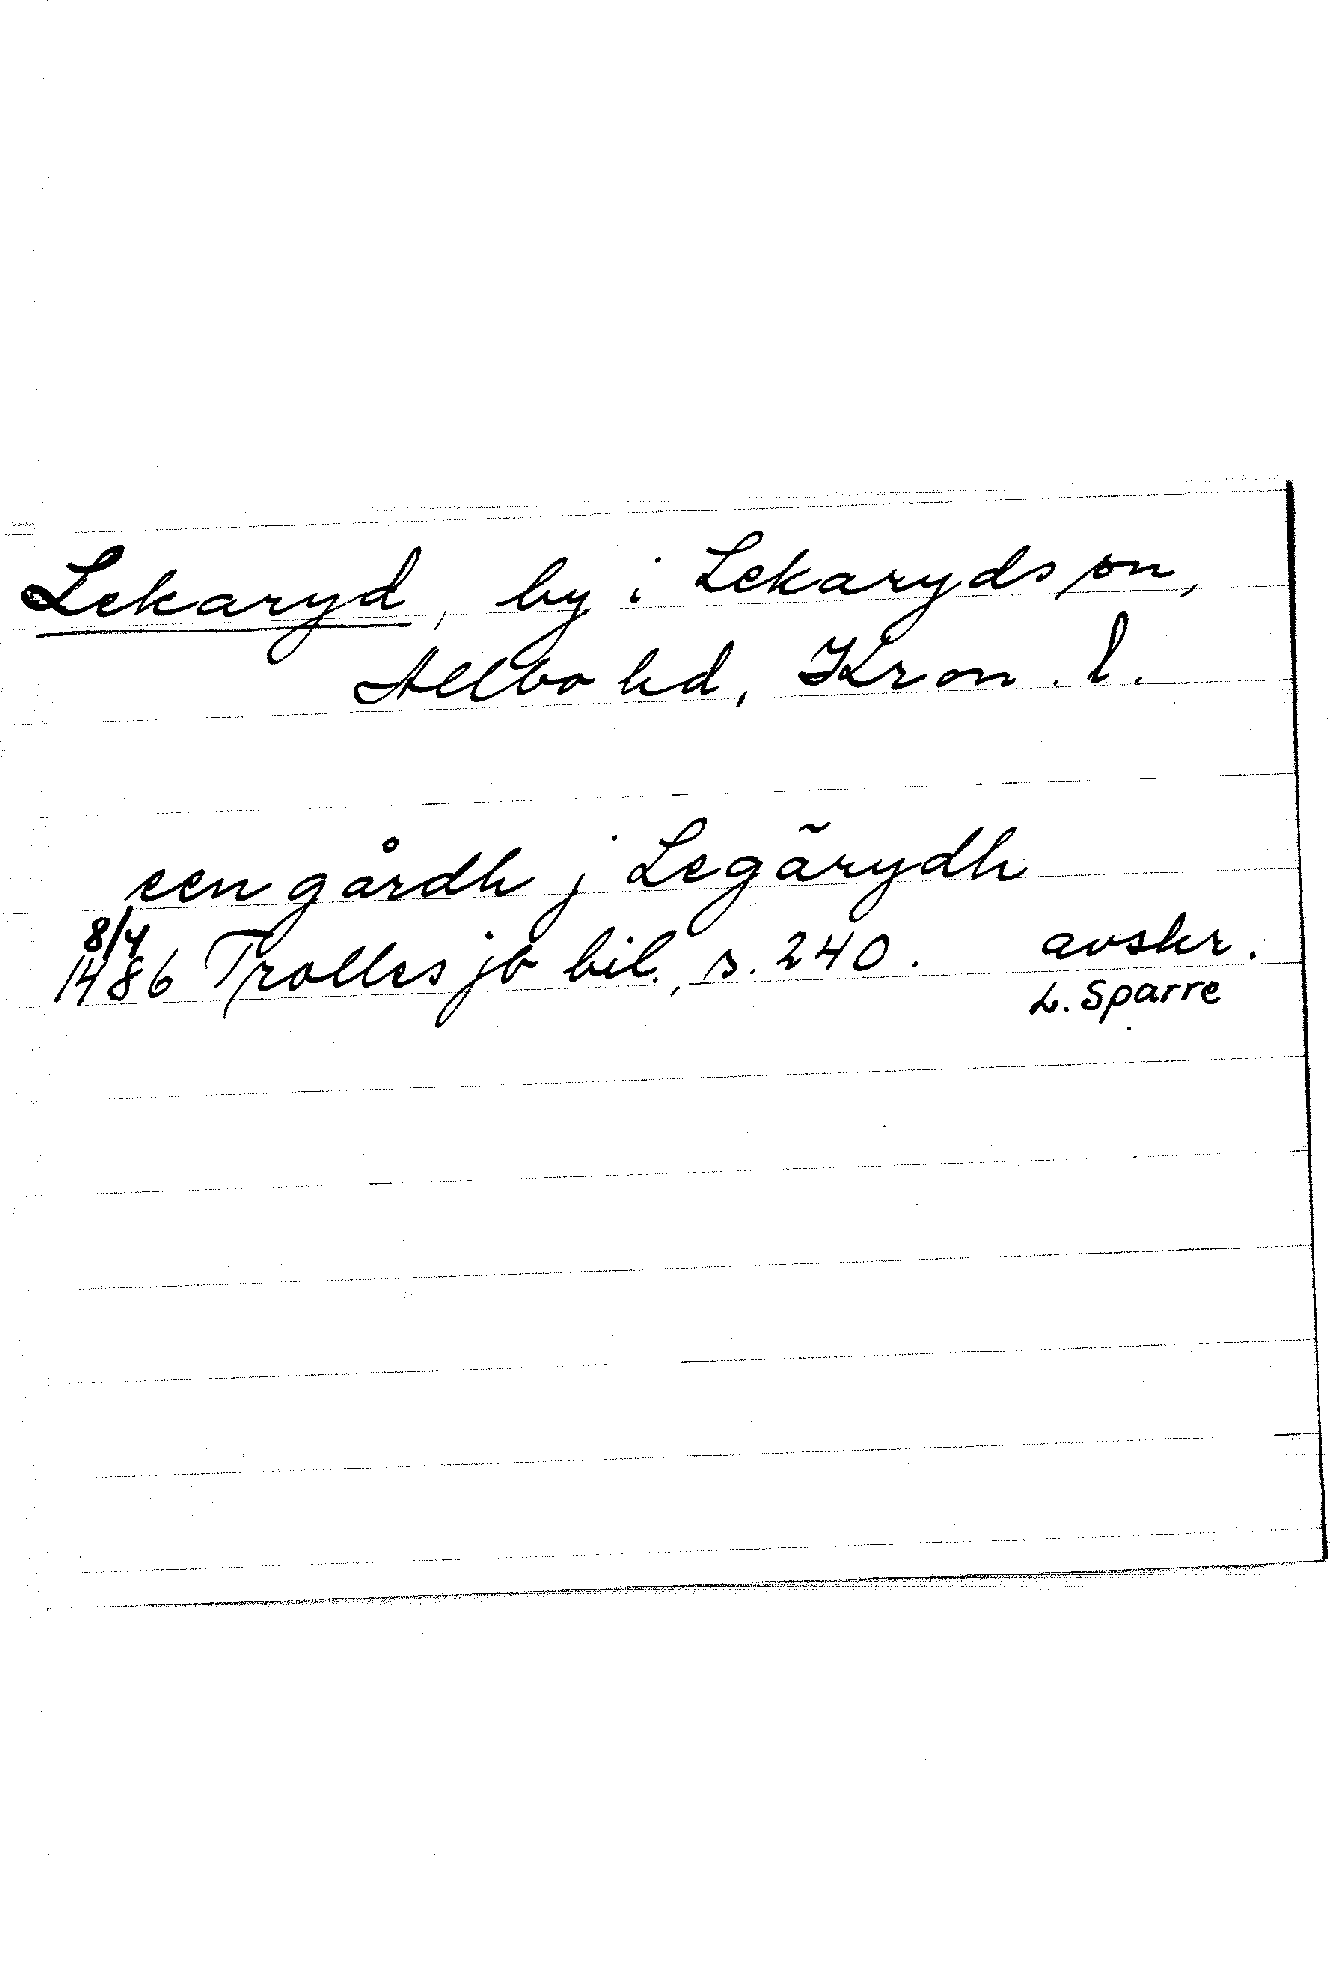 Lekaryd, by i Lekaryds sn,
Allbo hd, Kron. l.
een gårdh j Legãrydh
8/4
1486 Trolles jb bil., s. 240. avskr.
L. Sparre